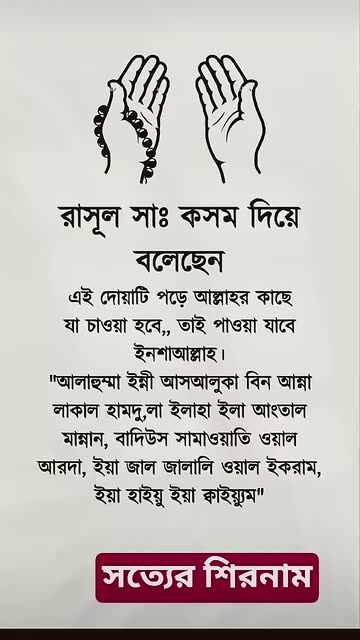 রাসূল সাঃ কসম দিয়ে
বলেছেন
এই দোয়াটি পড়ে আল্লাহর কাছে
যা চাওয়া হবে,, তাই পাওয়া যাবে
ইনশাআল্লাহ।
"আলাহুম্মা ইন্নী আসআলুকা বিন আন্না
লাকাল হামদু,লা ইলাহা ইলা আংতাল
মান্নান, বাদিউস সামাওয়াতি ওয়াল
আরদা, ইয়া জাল জালালি ওয়াল ইকরাম,
ইয়া হাইয়ু ইয়া ক্বাইয়্যুম"
সত্যের শিরনাম